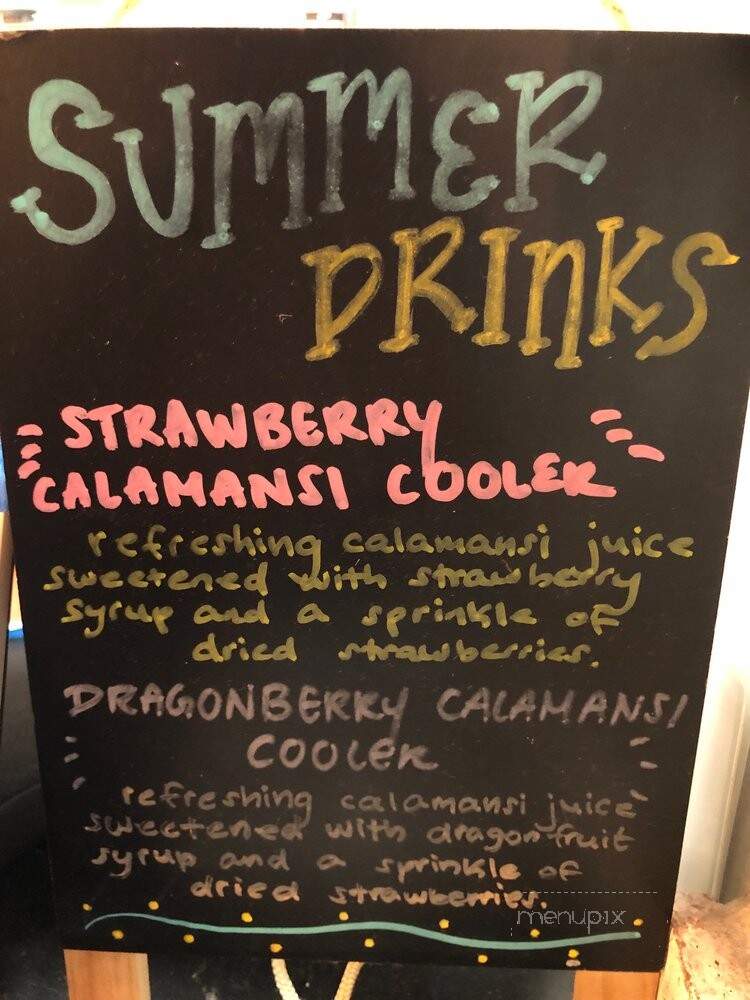 SUMMER
DRINKS
STRAWBERRY
CALAMANSI COOLER
refreshing calamansi juice
sweetened with strawberry
syrup and a sprinkle of
dried strawberries.
DRAGONBERRY CALAMANSI
COOLER
refreshing calamansi juice
sweetened with dragonfruit
syrup and a sprinkle of
dried strawberries.
menupix